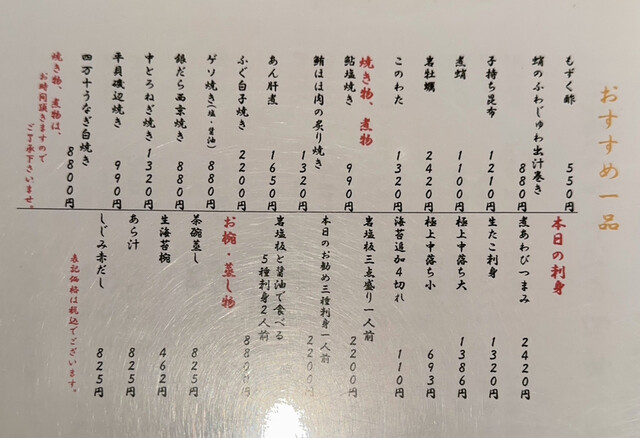 おすすめ一品
もずく酢 550円
蛸のふわじゅわ出汁巻き 880円
子持ち昆布 1210円
煮蛸 1100円
岩牡蠣 2420円
このわた 1320円
焼き物、煮物
鮎塩焼き 990円
鮪ほほ肉の炙り焼き 1320円
あん肝煮 1650円
ふぐ白子焼き 2200円
ゲソ焼き(塩・醤油) 880円
銀だら西京焼き 880円
中とろねぎ焼き 1320円
平貝磯辺焼き 990円
四万十うなぎ白焼き 8800円
焼き物、煮物は、
お時間頂きますので
ご了承下さいませ。
本日の刺身
煮あわびつまみ 2420円
生たこ刺身 1320円
極上中落ち大 1386円
極上中落ち小 693円
海苔追加4切れ 110円
岩塩板三点盛り一人前 2200円
本日のお勧め三種刺身一人前 2200円
岩塩板と醤油で食べる
5種刺身2人前 8800円
お椀・蒸し物
茶碗蒸し 825円
生海苔椀 462円
あら汁 825円
しじみ赤だし 825円
表記価格は税込でございます。